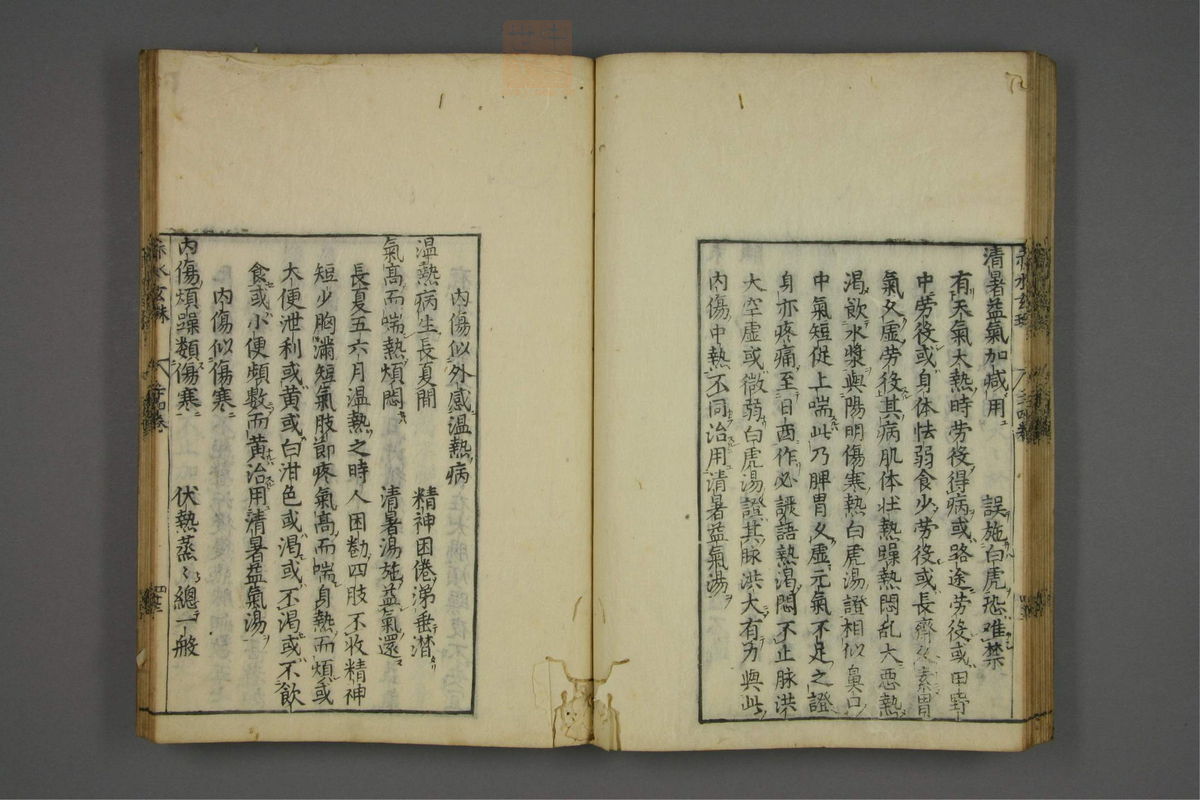 清暑益氣加減用　誤施白虎恐难禁
有天氣大熱時劳役得病或路途劳役或田野
中劳役或身体怯弱食少劳役或長齋素胃
氣又虚劳役其病肌体壮熱躁熱悶乱大悪熱
渴飲水漿與陽明傷寒熱白虎湯證相似鼻口
中氣短促上喘此乃脾胃乆虚元氣不足之證
身亦疼痛至日西作必譫語熱渴悶不止脉洪
大空虚或微弱白虎湯證其脉洪大有力與此
内傷中熱不同治用清暑益氣湯
内傷似外感温熱病
温熱病生長夏間　精神困倦涕垂潸
氣高而喘熱煩悶　清暑湯施益氣還
長夏五六月温熱之時人困勌四肢不收精神
短少胸滿短氣肢節疼氣高而喘身熱而煩或
大便泄利或黄或白泔色或渴或不渴或不飲
食或小便頻數而黄治用清暑益氣湯
内傷似傷寒
内傷煩躁類傷寒　伏熱蒸〻總一般
赤水玄珠